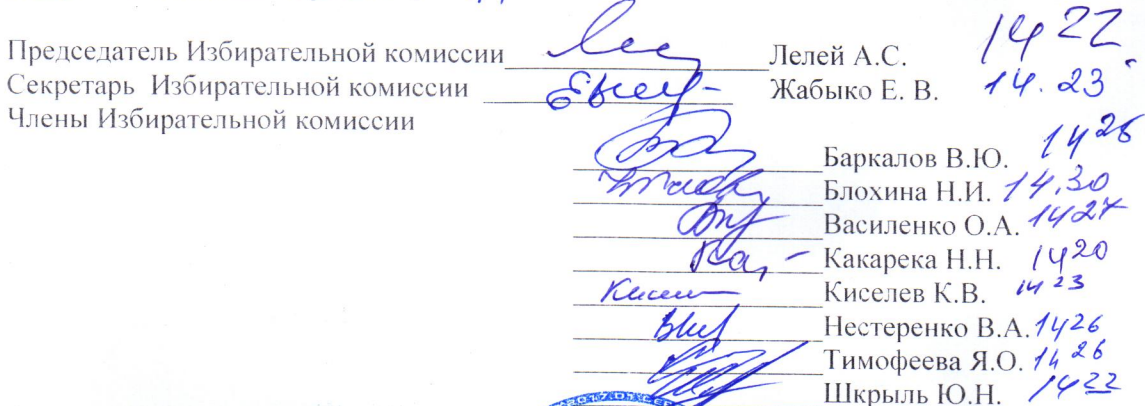 Председатель Избирательной комиссии Лелей А.С. 14 22
Секретарь Избирательной комиссии Жабыко Е. В. 14. 23
Члены Избирательной комиссии
Баркалов В.Ю. 14 26
Блохина Н.И. 14.30
Василенко О.А. 14 27
Какарека Н.Н. 14 20
Киселев К.В. 14 23
Нестеренко В.А. 14 26
Тимофеева Я.О. 14 26
Шкрыль Ю.Н. 14 22